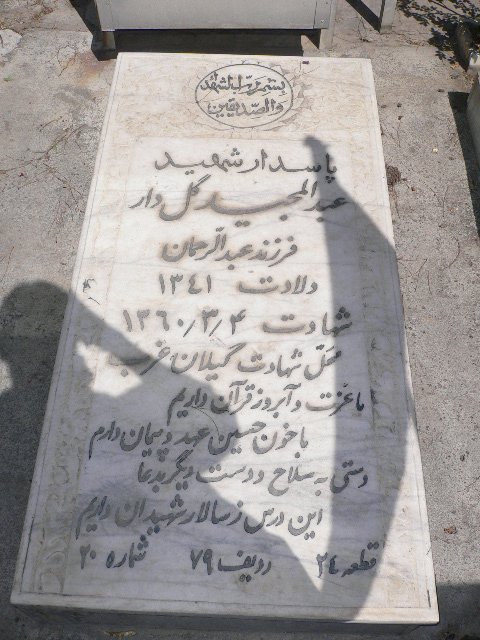 بسم رب الشهداء
والصدیقین
پاسدار شهید
عبدالمجید گل دار
فرزند عبدالرحمان
ولادت ۱۳۴۱
شهادت ۱۳۶۰/۳/۴
محل شهادت گیلان غرب
ما عزت و آبرو ز قرآن داریم
با خون حسین عهد و پیمان داریم
دستی به سلاح و دست دیگر بدعا
این درس ز سالار شهیدان داریم
قطعه ۲۴ ردیف ۷۹ شماره ۲۰